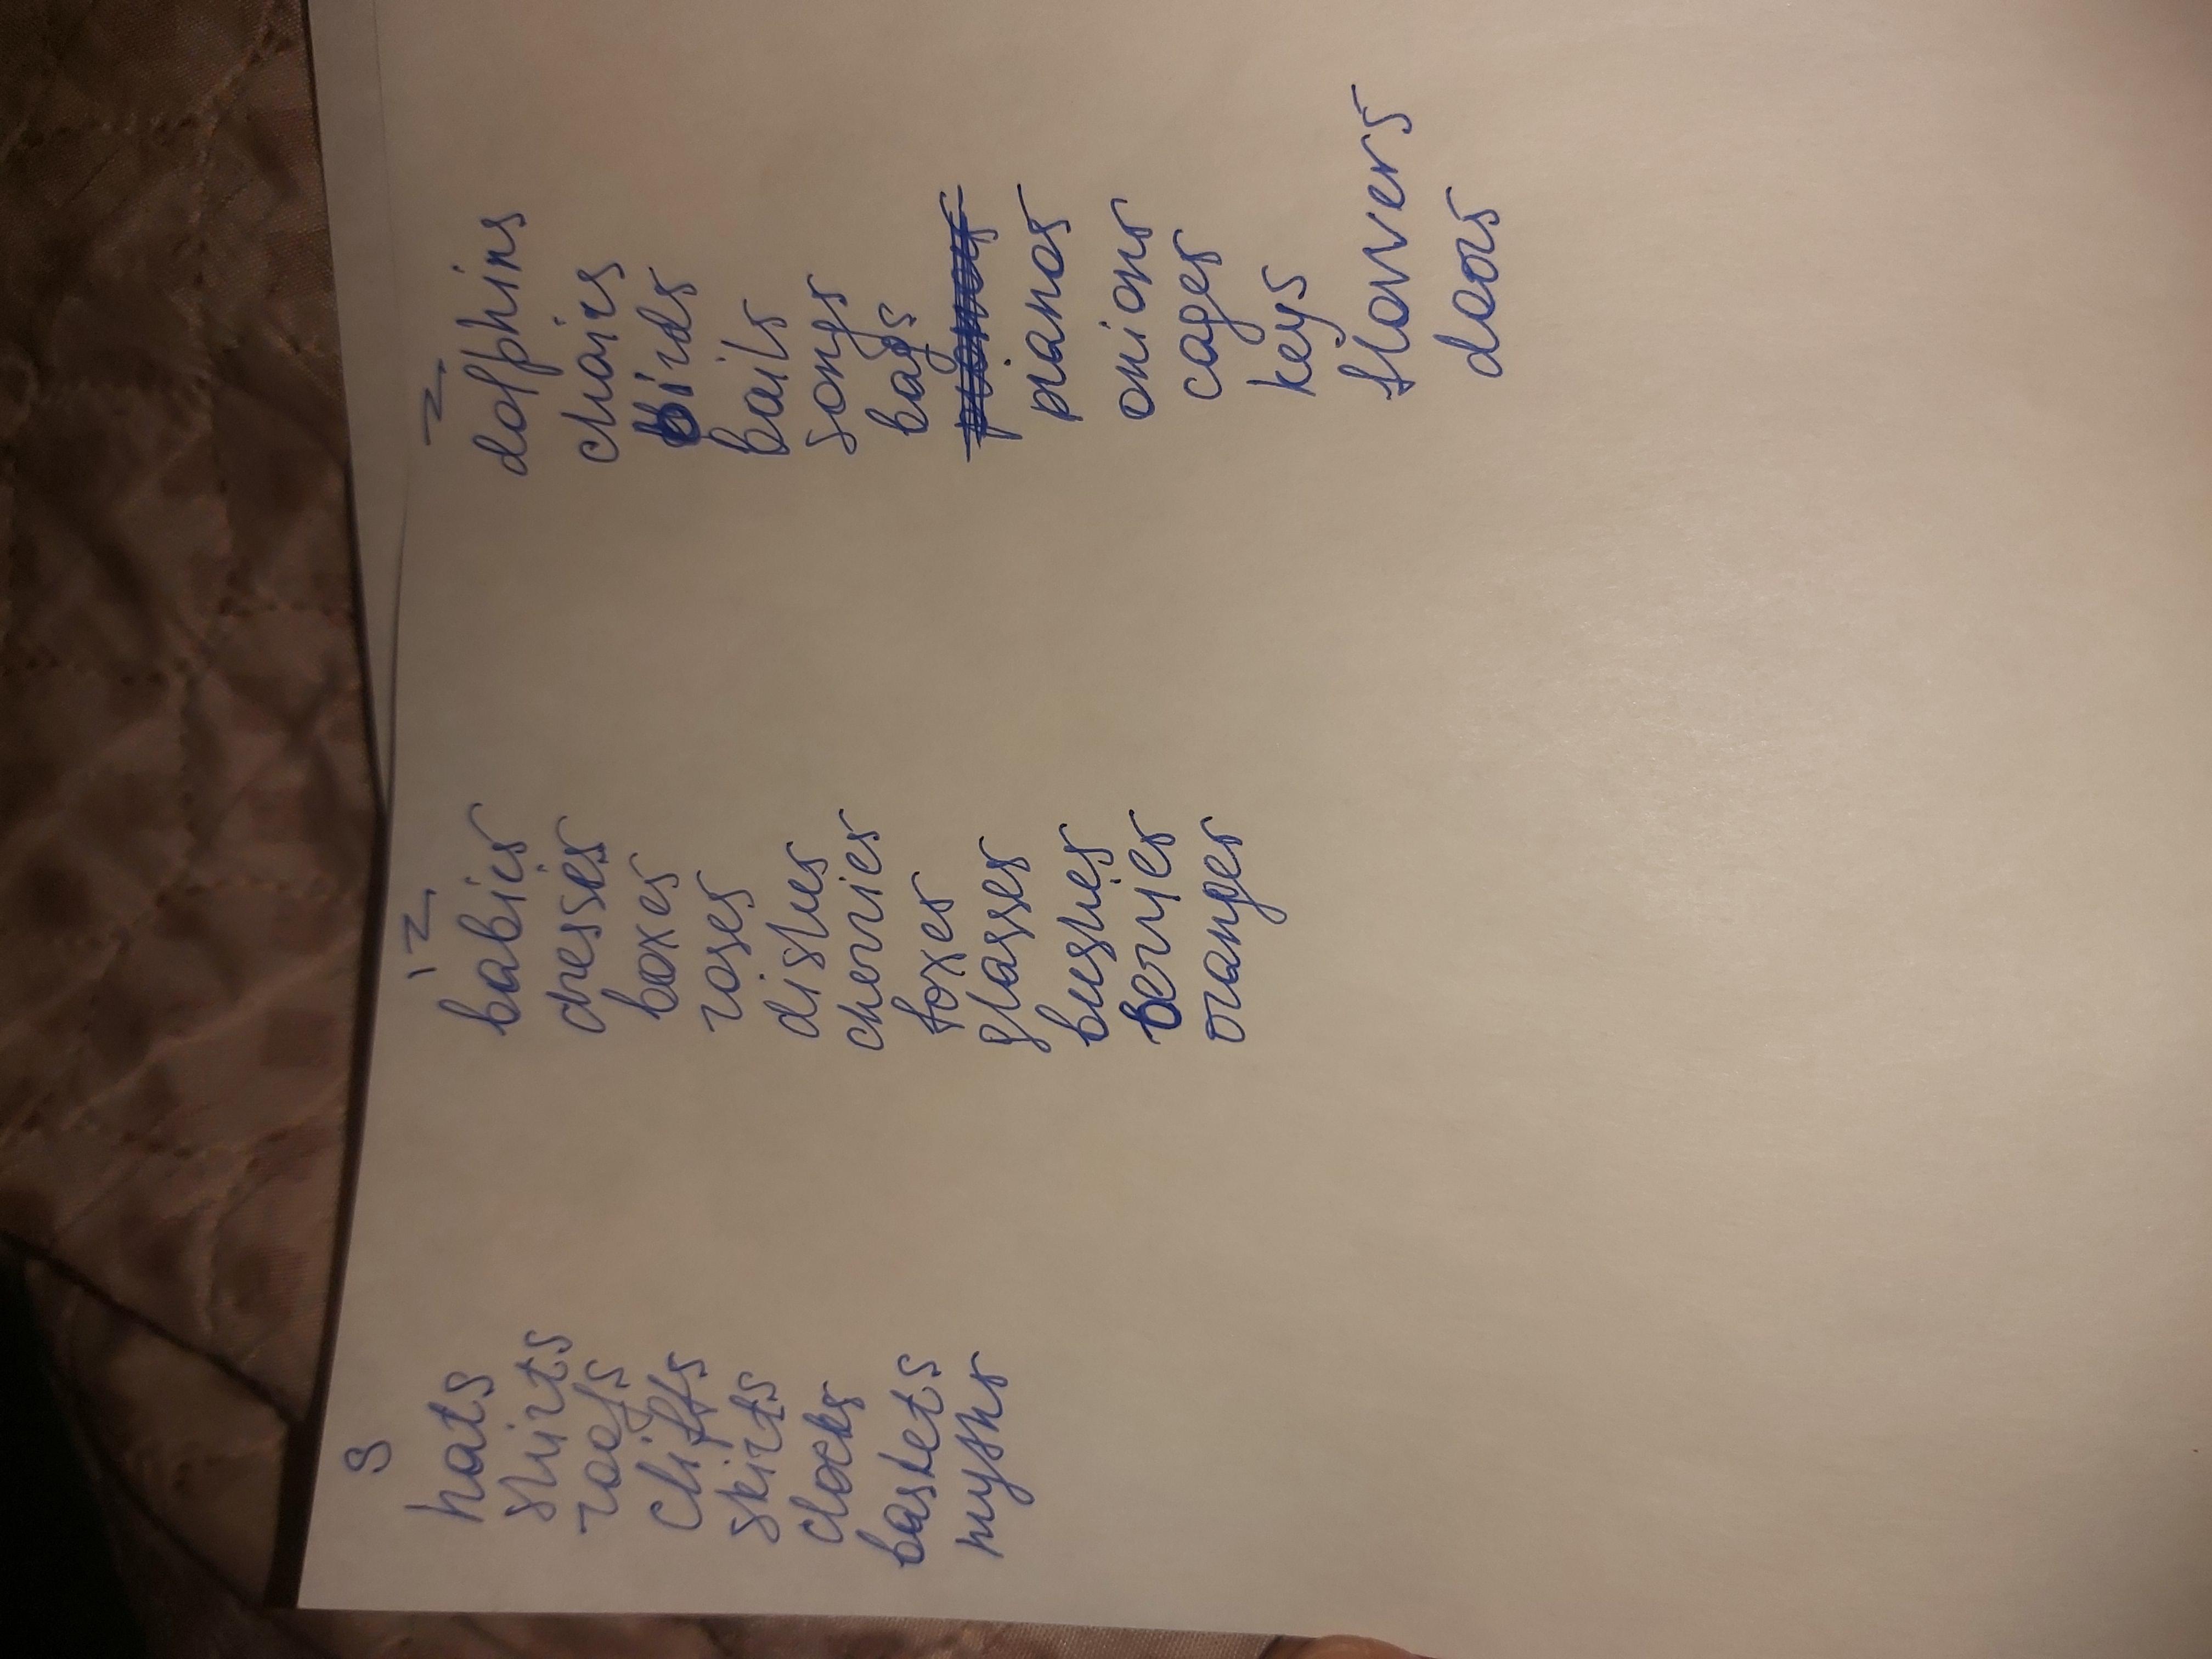 s
hats
shirts
roofs
cliffs
skirts
clocks
baskets
myths
iz
babies
dresses
boxes
roses
dishes
cherries
foxes
glasses
bushes
berries
oranges
z
dolphins
chairs
birds
bails
songs
bags
pianos
onions
cages
keys
flowers
doors